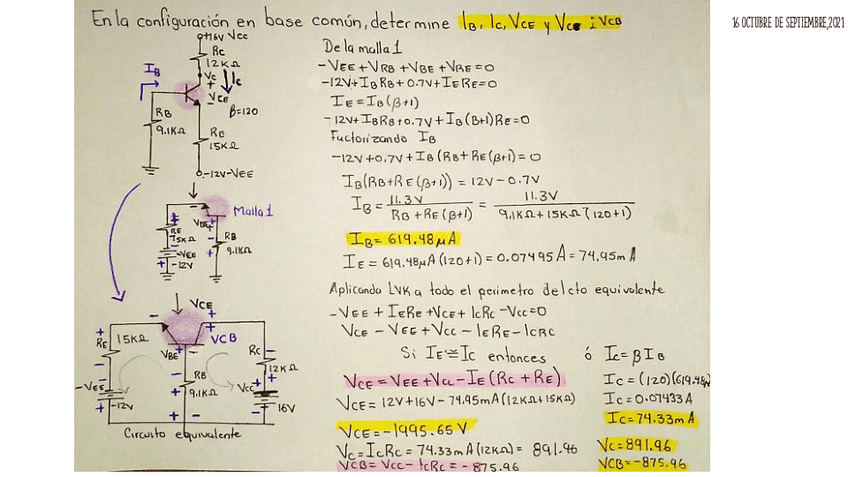 16 OCTUBRE DE SEPTIEMBRE,2021
En la configuración en base común, determine IB, IC, VCE y VCB ; VCB
+16V VCC
RC
12KΩ
VC
IC
IB
+
VCE
-
β=120
RB
9.1KΩ
RE
15KΩ
-12V-VEE
Malla 1
RE
15KΩ
VBE
RB
9.1KΩ
-VEE
-12V
VCE
RE
15KΩ
VBE
VCB
RC
12KΩ
RB
9.1KΩ
VCC
-VEE
-12V
16V
Circuito equivalente
De la malla 1
-VEE+VRB+VBE+VRE=0
-12V+IBRB+0.7V+IERE=0
IE=IB(β+1)
-12V+IBRB+0.7V+IB(β+1)RE=0
Factorizando IB
-12V+0.7V+IB(RB+RE(β+1)=0
IB(RB+RE(β+1))=12V-0.7V
IB= 11.3V / RB+RE(β+1) = 11.3V / 9.1KΩ+15KΩ(120+1)
IB= 619.48μA
IE=619.48μA(120+1)=0.07495A=74.95mA
Aplicando LVK a todo el perimetro del cto equivalente
-VEE+IERE+VCE+ICRC-VCC=0
VCE-VEE+VCC-IERE-ICRC
Si IE≅IC entonces
ó IC=βIB
VCE=VEE+VCC-IE(RC+RE)
IC=(120)(619.48μ
VCE=12V+16V-74.95mA(12KΩ+15KΩ)
IC=0.07433A
IC=74.33mA
VCE=-1995.65V
VC=ICRC=74.33mA(12KΩ)=891.96
VC=891.96
VCB=VCC-ICRC=-875.96
VCB=-875.96